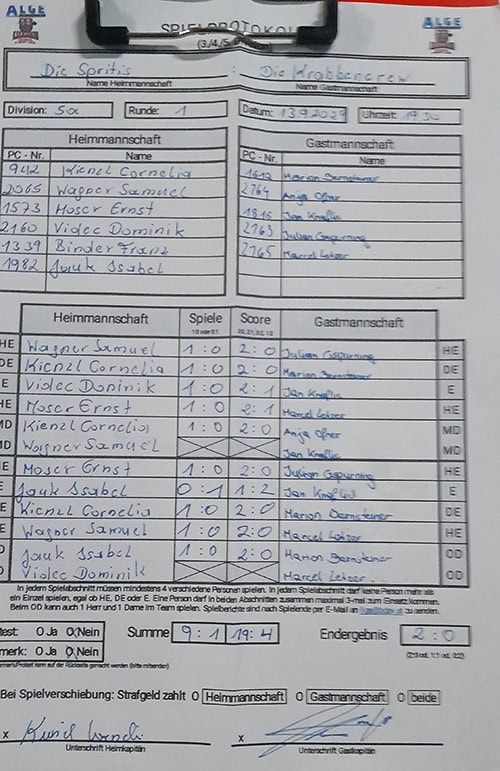 ALGE ALGE
SPIELPROTOKOLL
(3./4./5.
Die Spritis : Die Krabbencrew
Name Heimmannschaft Name Gastmannschaft
Division: 5a Runde: 1 Datum: 13.9.2024 Uhrzeit: 19 30
Heimmannschaft Gastmannschaft
PC - Nr. Name PC - Nr. Name
942 Kienzl Cornelia 1612 Marion Bernsteiner
2065 Wagner Samuel 2764 Anja Ofner
1573 Moser Ernst 1816 Jan Knaflic
2160 Violec Dominik 2763 Julian Gspurning
1339 Binder Franz 2765 Marcel Letzer
1982 Jauk Isabel
Heimmannschaft Spiele Score Gastmannschaft
1:0 oder 0:1 2:0, 2:1, 0:2, 1:2
HE Wagner Samuel 1 : 0 2 : 0 Julian Gspurning HE
DE Kienzl Cornelia 1 : 0 2 : 0 Marion Bernsteiner DE
E Violec Dominik 1 : 0 2 : 1 Jan Knaflic E
HE Moser Ernst 1 : 0 2 : 1 Marcel Letzer HE
MD Kienzl Cornelia 1 : 0 2 : 0 Anja Ofner MD
MD Wagner Samuel Jan Knaflic MD
E Moser Ernst 1 : 0 2 : 0 Julian Gspurning HE
E Jauk Isabel 0 : 1 1 : 2 Jan Knaflic E
E Kienzl Cornelia 1 : 0 2 : 0 Marion Bernsteiner DE
E Wagner Samuel 1 : 0 2 : 0 Marcel Letzer HE
D Jauk Isabel 1 : 0 2 : 0 Marion Bernsteiner OD
D Violec Dominik Marcel Letzer OD
In jedem Spielabschnitt müssen mindestens 4 verschiedene Personen spielen. In jedem Spielabschnitt darf keine Person mehr als
ein Einzel spielen, egal ob HE, DE oder E. Eine Person darf in beiden Abschnitten zusammen maximal 3-mal zum Einsatz kommen.
Beim OD kann auch 1 Herr und 1 Dame im Team spielen. Spielberichte sind nach Spielende per E-Mail an zu senden.
test: O Ja O Nein Summe 9 : 1 19 : 4 Endergebnis 2 : 0
merk: O Ja O Nein (2:0 od. 1:1 od. 0:2)
Protest kann auf der Rückseite gemacht werden (bitte mitsenden)
Bei Spielverschiebung: Strafgeld zahlt O Heimmannschaft O Gastmannschaft O beide
x x
Unterschrift Heimkapitän Unterschrift Gastkapitän